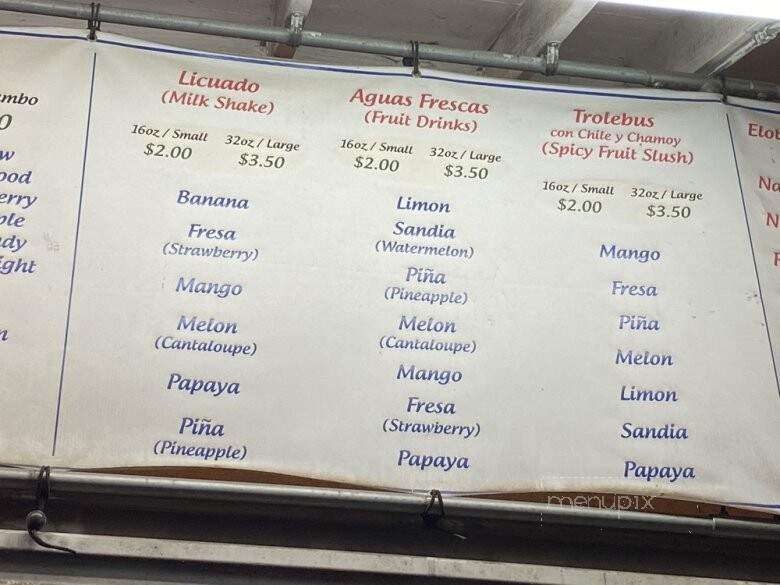 Licuado
(Milk Shake)
16oz / Small 32oz / Large
$2.00 $3.50
Banana
Fresa
(Strawberry)
Mango
Melon
(Cantaloupe)
Papaya
Piña
(Pineapple)
Aguas Frescas
(Fruit Drinks)
16oz / Small 32oz / Large
$2.00 $3.50
Limon
Sandia
(Watermelon)
Piña
(Pineapple)
Melon
(Cantaloupe)
Mango
Fresa
(Strawberry)
Papaya
Trolebus
con Chile y Chamoy
(Spicy Fruit Slush)
16oz / Small 32oz / Large
$2.00 $3.50
Mango
Fresa
Piña
Melon
Limon
Sandia
Papaya
menupix